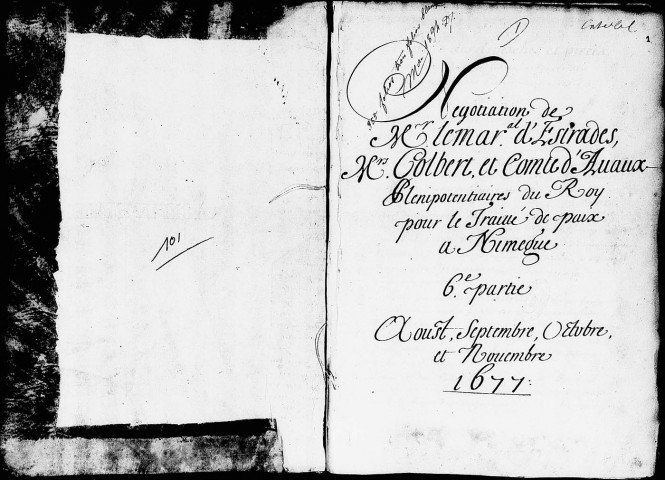 101
1
Negotiation de
Mr. lemar.al d'Estrades,
Mrs. Colbert, et Comte d'Auaux
Plenipotentiaires du Roy
pour le Traitté de paix
a Nimegue
6.e partie
Aoust, Septembre, Octobre,
et Nouembre
1677.